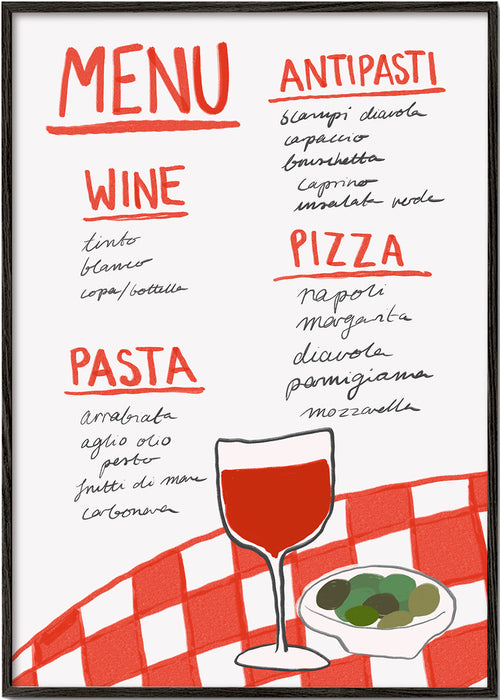 MENU
WINE
tinto
blanco
copa/bottella
PASTA
arrabiata
aglio olio
pesto
frutti di mare
carbonara
ANTIPASTI
scampi diavola
capaccio
bruschetta
caprino
insalata verde
PIZZA
napoli
margarita
diavola
parmigiana
mozzarella